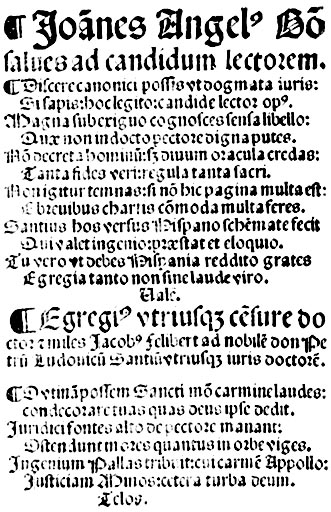 ¶ Joānes Angelꝰ Gō
salues ad candidum lectorem.
¶ Discere canonici possis vt dogmata iuris:
Si sapis: hoc legito: candide lector opꝰ.
Magna sub exiguo cognosces sensa libello:
Quæ non indocto pectore digna putes.
Nō decreta hominū: sꝫ diuum oracula credas:
Tanta fides veri: regula tanta sacri.
Non igitur temnas: si nō hic pagina multa est:
E breuibus chartis cōmoda multa feres.
Santius hos versus Hispano schēmate fecit
Qui valet ingenio: præstat et eloquio.
Tu vero vt debes Hispania reddito grates
Egregia tanto non sine laude viro.
Vale.
¶ Egregiꝰ vtriusqꝫ cēsure do
ctor et miles Jacobꝰ Felibert ad nobilē don Pe
trū Ludouicū Santiū vtriusqꝫ iuris doctorē.
¶ O vtinā possem Sancti mō carmine laudes:
condecorare tuas quas deus ipse dedit.
Juridici fontes alto de pectore manant:
Ostendunt mores quantus in orbe viges.
Ingenium Pallas tribuit: cui carmē Appollo:
Justiciam Minos: cetera turba deum.
Telos.